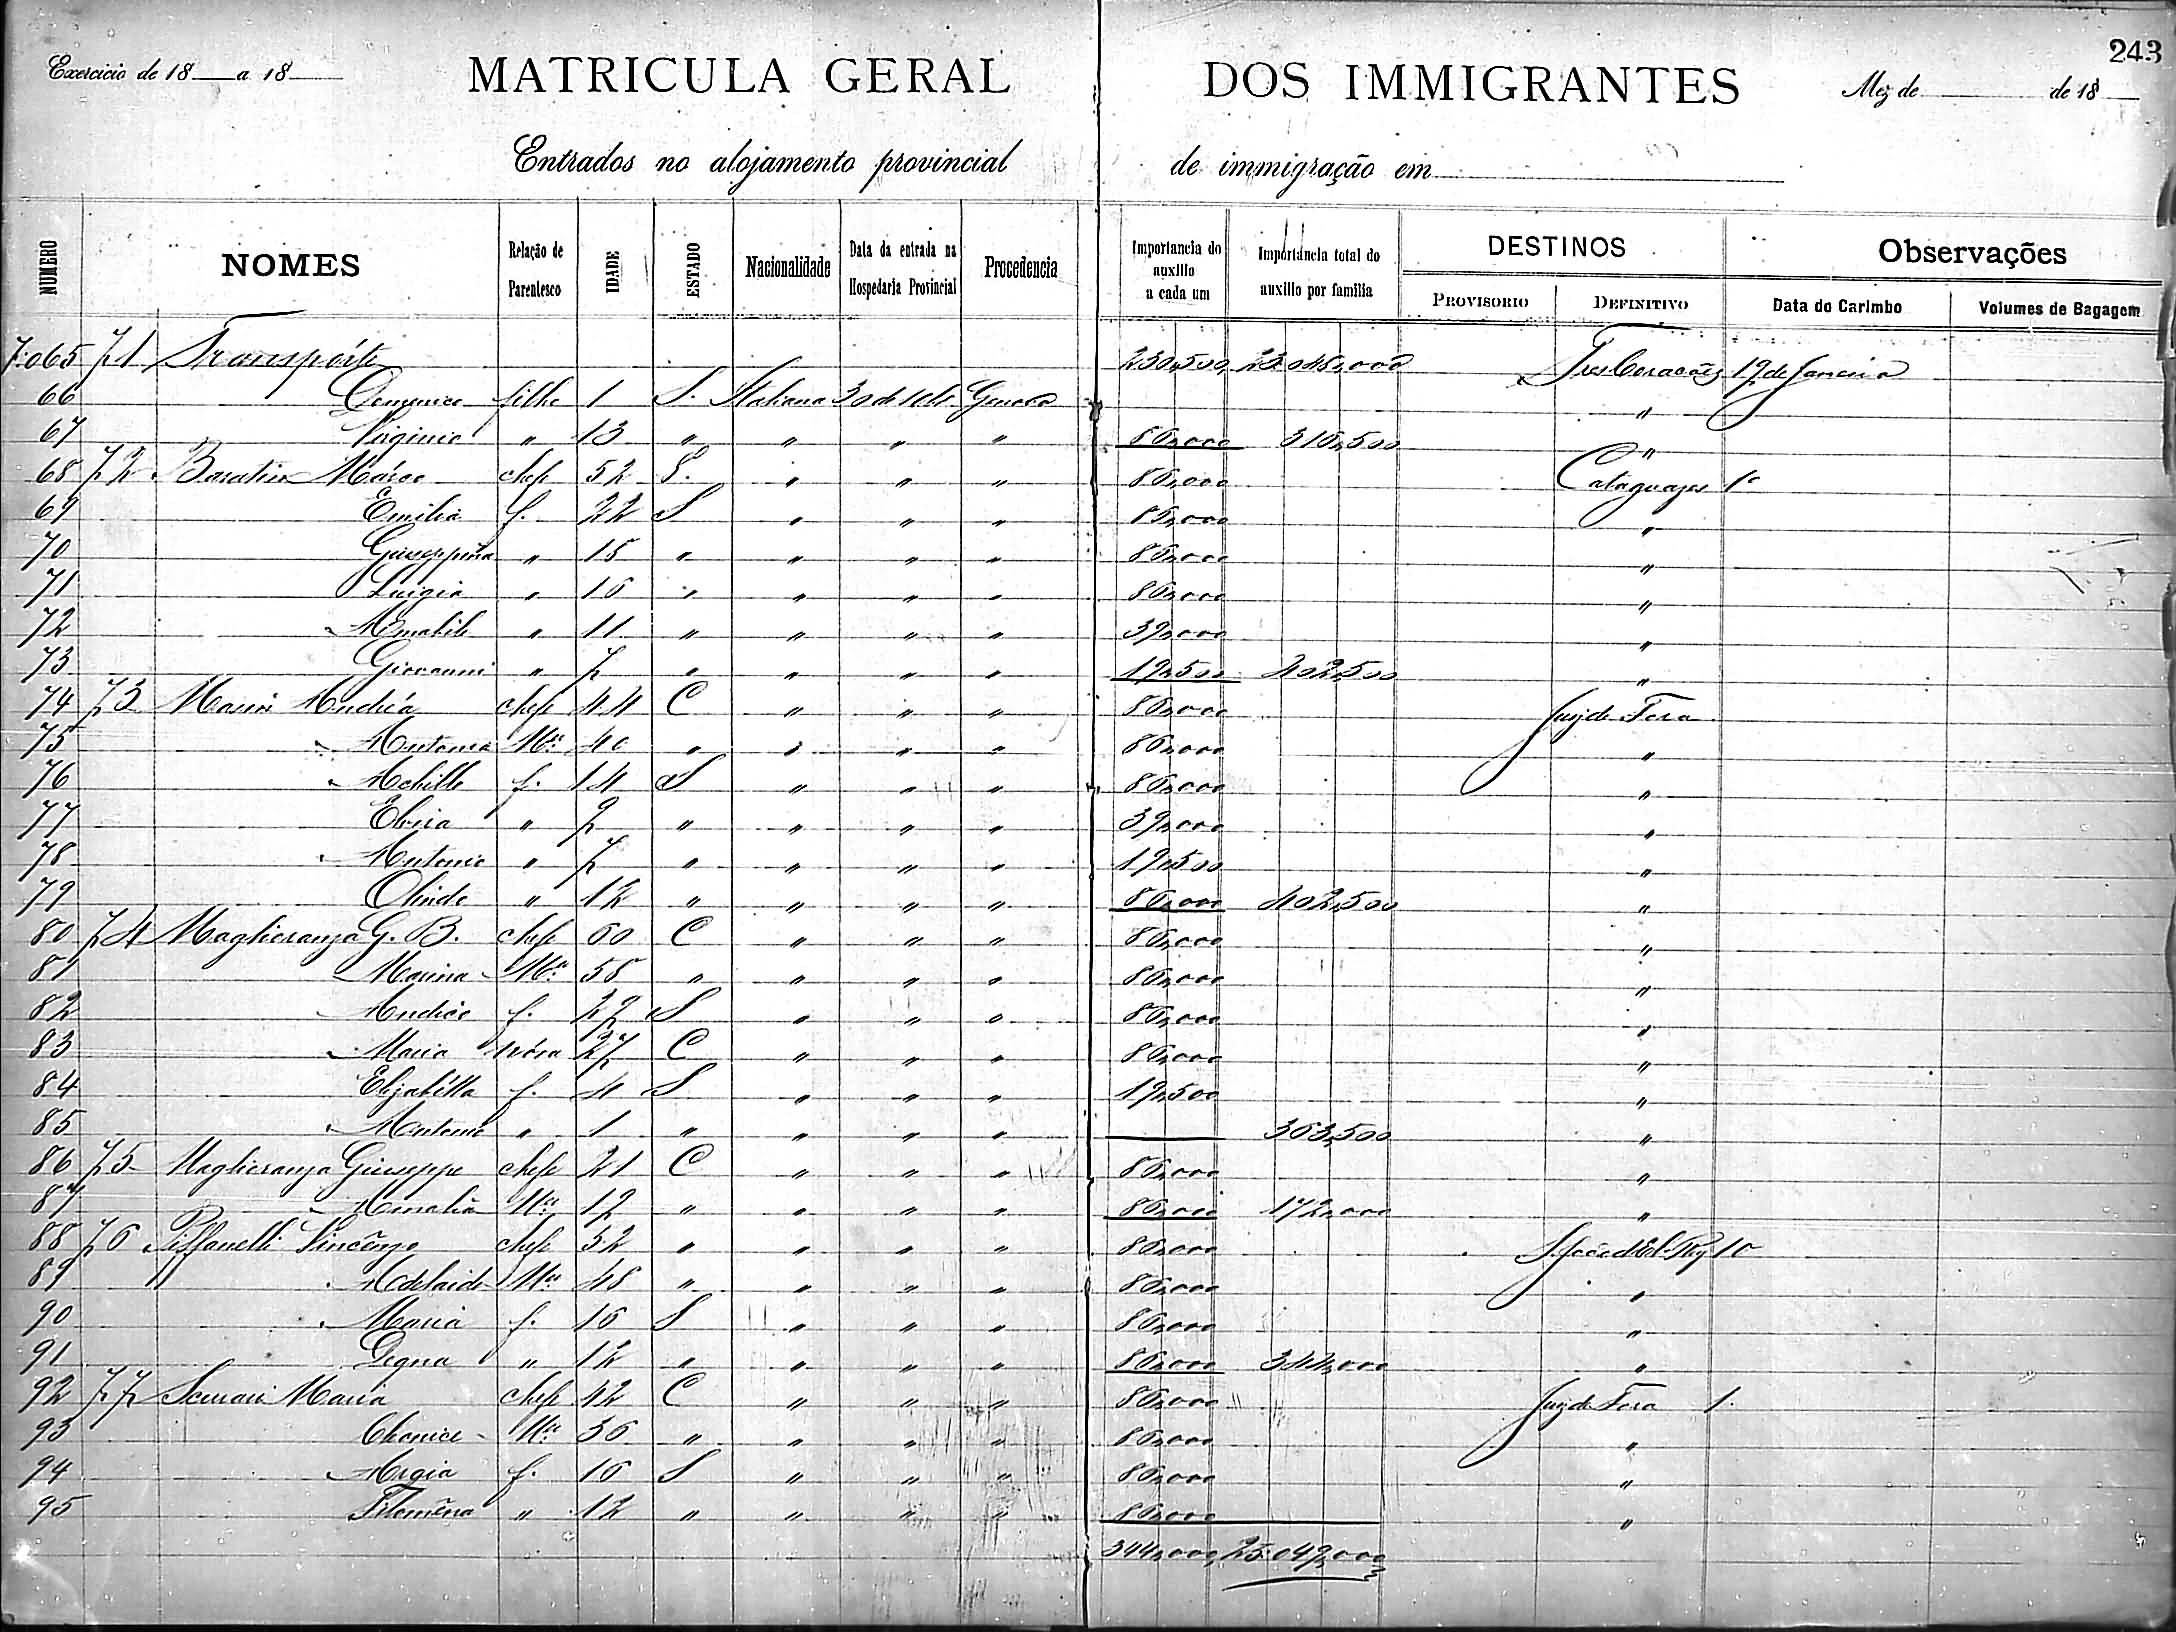 243
Exercicio de 18 a 18
MATRICULA GERAL DOS IMMIGRANTES
Mez de de 18
Entrados no alojamento provincial de immigração em
NUMERO NOMES Relação de Parentesco IDADE ESTADO Nacionalidade Data da entrada na Hospedaria Provincial Procedencia Importancia do auxilio a cada um Importancia total do auxilio por familia DESTINOS PROVISORIO DEFINITIVO Observações Data do Carimbo Volumes de Bagagem
7:065 71 Transpórte 230,500 Tres Corações 19 de Janeiro
66 Domenico filho 1 S. Italiana Genova "
67 Virginio " 13 " " " " 86,000 316,500 "
68 72 Marco chefe 52 " " " 86,000 Cataguazes
69 Emilia f. 22 S " " " 86,000 "
70 Giuseppina " 15 " " " " 86,000 "
71 Luigia " 16 " " " " 86,000 "
72 Amabile " 11 " " " " 39,000 "
73 Giovanni " 7 " " " " 19,500 402,500 "
74 73 Andréa chefe 44 C " " " 86,000 Juiz de Fora
75 Antonia Mer 40 " " " " 86,000 "
76 Achille f. 14 S " " " 86,000 "
77 Elvira " 9 " " " " 39,000 "
78 Antonio " 7 " " " " 19,500 "
79 Olindo " 12 " " " " 86,000 402,500 "
80 74 Maglieranza G. B. chefe 60 C " " " 86,000 "
81 Marina Mer 58 " " " " 86,000 "
82 Andréa f. 29 S " " " 86,000 "
83 Maria nóra 27 C " " " 86,000 "
84 Elizabétta f. 4 S " " " 19,500 "
85 Antonio " 1 " " " " 363,500 "
86 75 Maglieranza Giuseppe chefe 21 C " " " 86,000 "
87 Amalia Mer 19 " " " " 86,000 172,000 "
88 76 Vincênzo chefe 52 " " " " 86,000
89 Adelaide Mer 48 " " " " 86,000 "
90 Maria f. 16 S " " " 86,000 "
91 Degna " 12 " " " " 86,000 344,000 "
92 77 Maria chefe 42 C " " " 86,000 Juiz de Fora 1.
93 Mer 36 " " " " 86,000 "
94 Argia f. 16 S " " " 86,000 "
95 Filoména " 12 " " " " 86,000 "
344,000 25:049,000